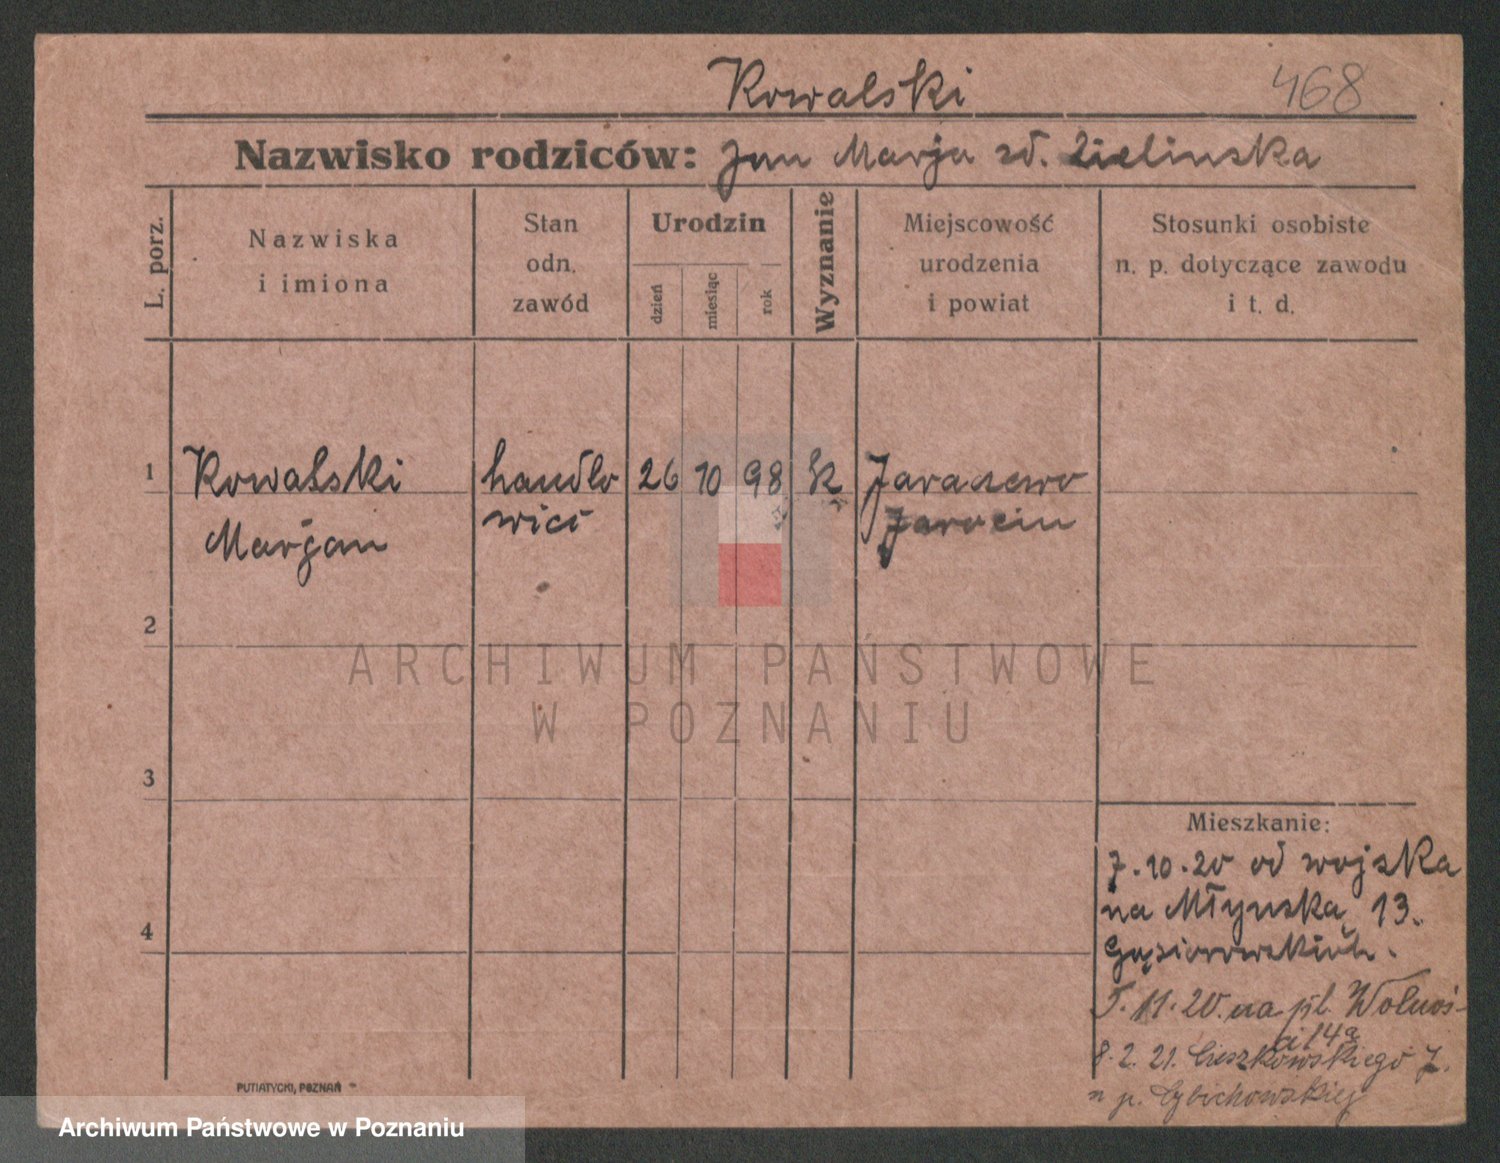 Kowalski 468
Nazwisko rodziców: Jan Marja zd. Zielinska
L. porz.
Nazwiska
i imiona
Stan
odn.
zawód
Urodzin
dzień
miesiąc
rok
Wyznanie
Miejscowość
urodzenia
i powiat
Stosunki osobiste
n. p. dotyczące zawodu
i t. d.
1 Kowalski handlo 26 10 98 k Jaraczewo
Marjan wiec Jarocin
2
ARCHIWUM PAŃSTWOWE
W POZNANIU
3
4
Mieszkanie:
7.10.20 od wojska
na Młyńska 13.
Gąsiorowskich.
5.11.20. na pl. Wolnoś-
ci 14a
8.2.21. Cieszkowskiego 7.
p. Cybichowskiej
PUTIATYCKI, POZNAŃ
Archiwum Państwowe w Poznaniu